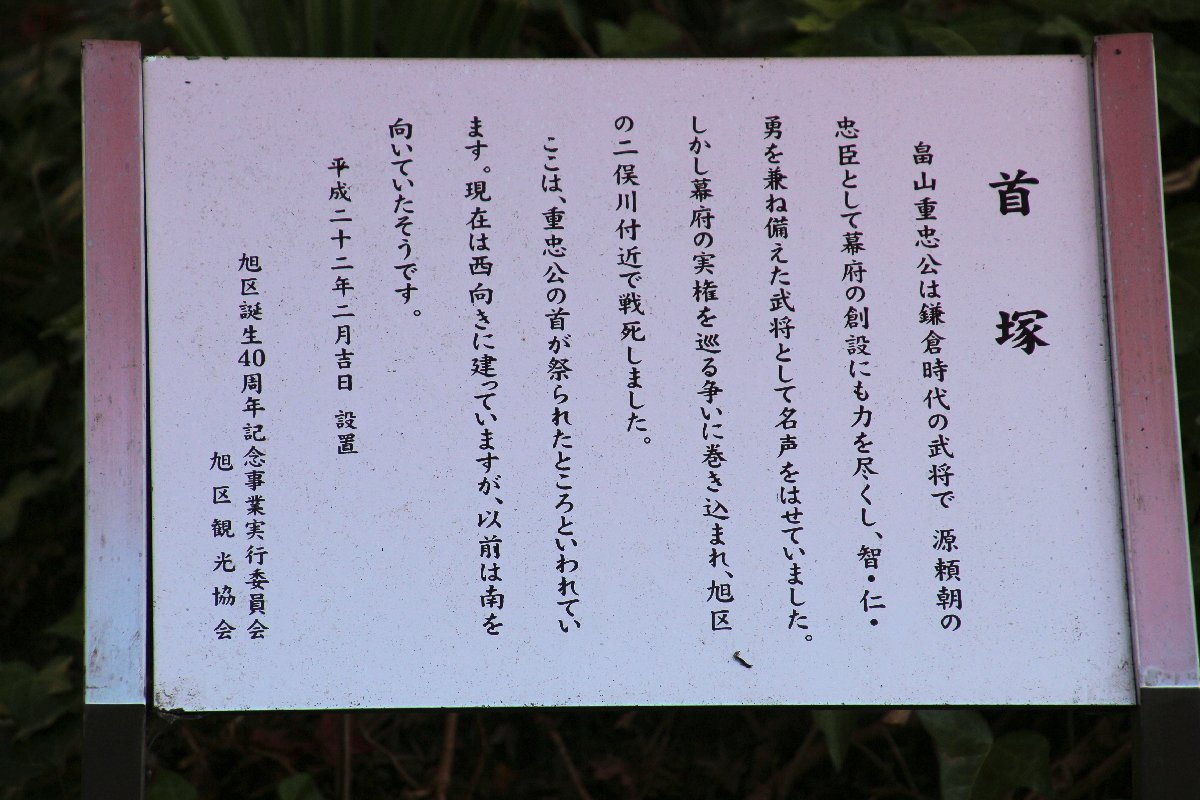 首塚
畠山重忠公は鎌倉時代の武将で 源頼朝の
忠臣として幕府の創設にも力を尽くし、智・仁・
勇を兼ね備えた武将として名声をはせていました。
しかし幕府の実権を巡る争いに巻き込まれ、旭区
の二俣川付近で戦死しました。
ここは、重忠公の首が祭られたところといわれてい
ます。現在は西向きに建っていますが、以前は南を
向いていたそうです。
平成二十二年二月吉日 設置
旭区誕生40周年記念事業実行委員会
旭区観光協会